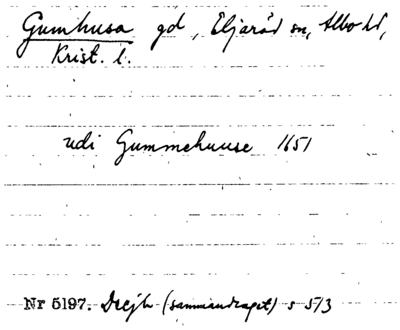 Gumhusa gd, Eljaröd sn, Albo hd,
Krist. l.
udi Gummehuuse 1651
Nr 5197. Decjb (sammandraget) s 573